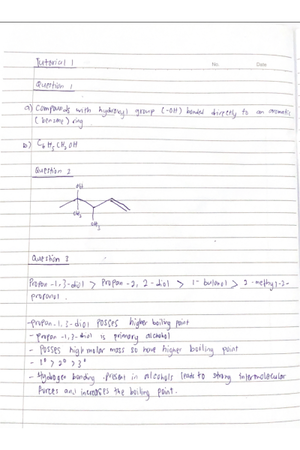 Tutorial 1
No. Date
Question 1
a) Compounds with hydroxyl group (-OH) bonded directly to an aromatic
(benzene) ring
b) C6H5CH2OH
Question 2
OH
CH3
CH3
Question 3
Propan-1,3-diol > Propan-2,2-diol > 1-butanol > 2-methyl-2-
propanol.
-propan-1,3-diol posses higher boiling point
- propan-1,3-diol is primary alcohol
- Posses high molar mass so have higher boiling point
- 1° > 2° > 3°
- Hydrogen bonding present in alcohols leads to strong intermolecular
forces and increases the boiling point.